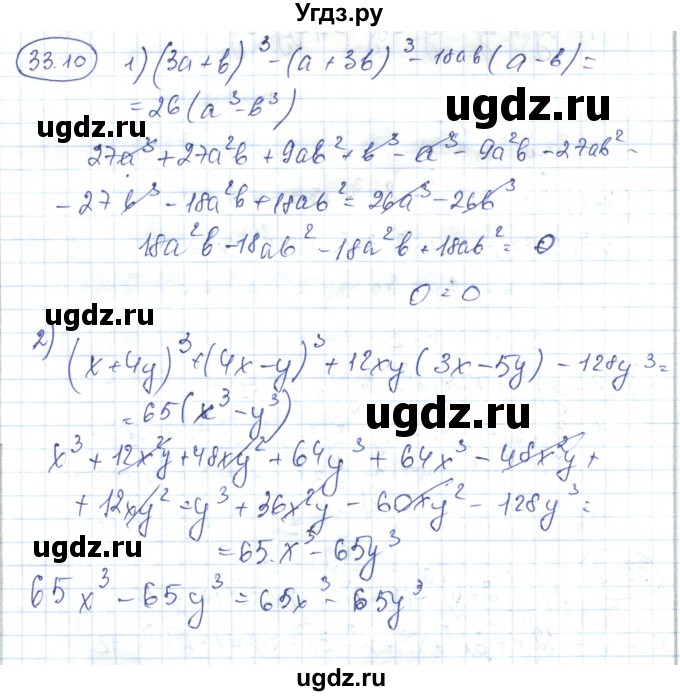 Угдз.ру
33.10 1) (3a+b)³-(a+3b)³-18ab(a-b)=
=26(a³-b³)
ugdz.ru ugdz.ru
27a³+27a²b+9ab²+b³-a³-9a²b-27ab²-
-27b³-18a²b+18ab²=26a³-26b³
18a²b-18ab²-18a²b+18ab²=0
0=0
ugdz.ru
2) (x+4y)³+(4x-y)³+12xy(3x-5y)-128y³=
=65(x³-y³)
ugdz.ru
x³+12x²y+48xy²+64y³+64x³-48x²y+
+12xy²=y³+36x²y-60xy²-128y³=
ugdz.ru
=65.x³-65y³
65x³-65y³=65x³-65y³
ugdz.ru ugdz.ru